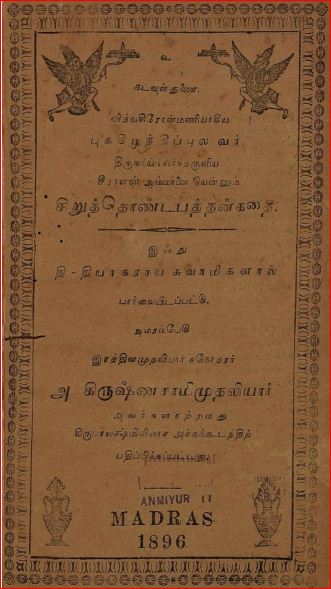 உ
கடவுள் துணை.
வித்வசிரோன்மணியாகிய
புகழேந்திப்புலவர்
திருவாய்மலர்ந்தருளிய
சீராளன் அம்மானை யென்னும்
சிறுத்தொண்டபத்தன்கதை.
இஃது
தி - தியாகராய சுவாமிகளால்
பார்வையிடப்பட்டு,
இரத்தினமுதலியார் சகோதரர்
அ கிருஷ்ணசாமிமுதலியார்
அவர்களாற்றமது
அச்சுக்கூடத்திற்
பதிப்பிக்கப்பட்டது.
ANMIYUR 11
MADRAS
1896